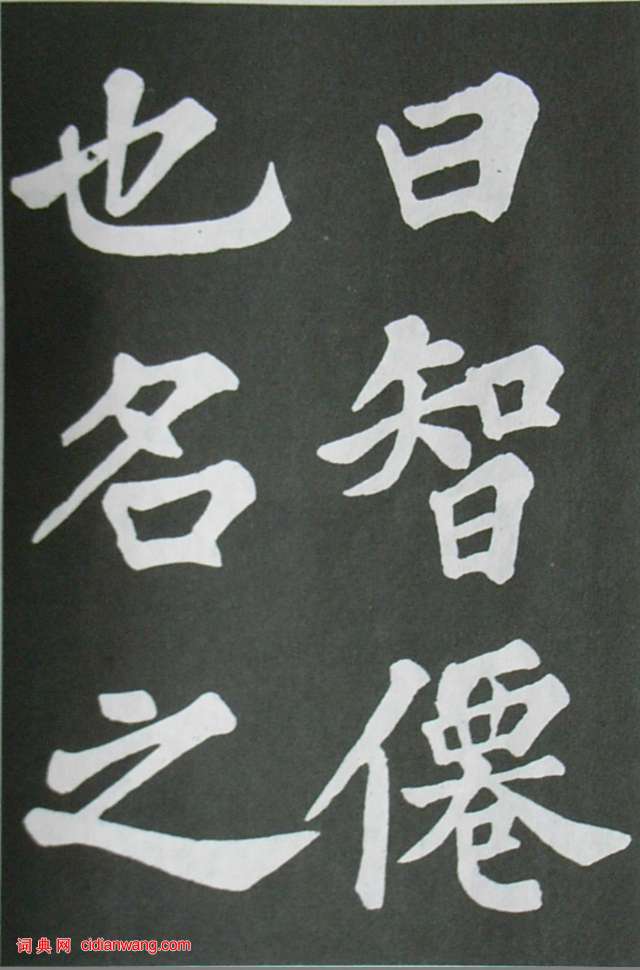 曰智僊
也名之
词典网 cidianwang.com